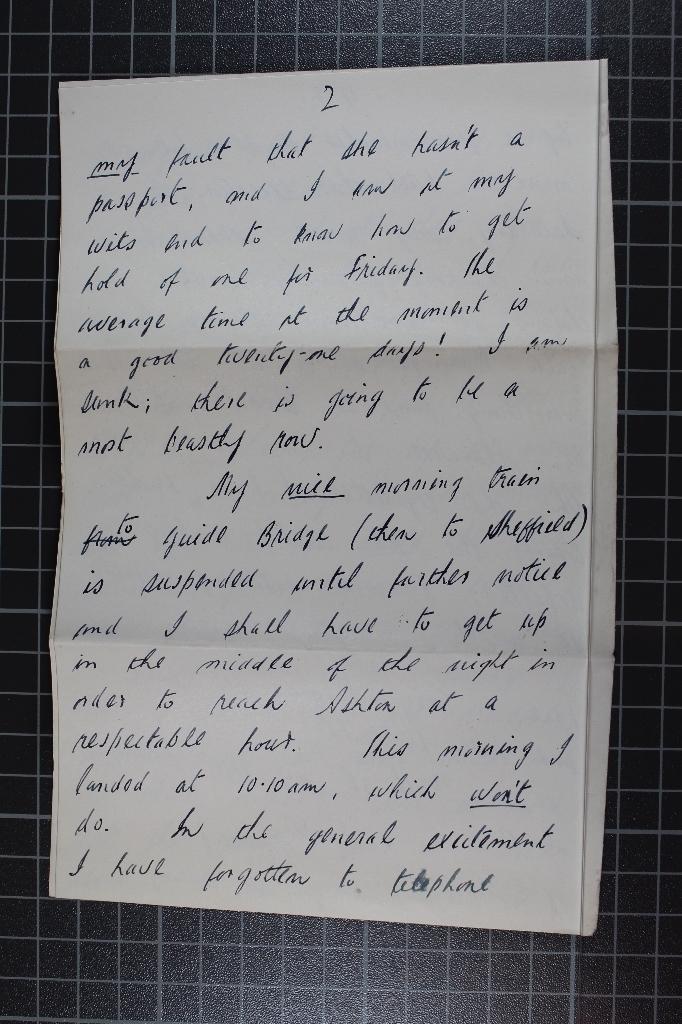 2
my fault that she hasn't a
passport, and I am at my
wits end to know how to get
hold of one for Friday. The
average time at the moment is
a good twenty-one days! I am
sunk; there is going to be a
most beastly row.
My nice morning train
from to Guide Bridge (then to Sheffield)
is suspended until further notice
and I shall have to get up
in the middle of the night in
order to reach Ashton at a
respectable hour. This morning I
landed at 10.10am, which won't
do. In the general excitement
I have forgotten to telephone